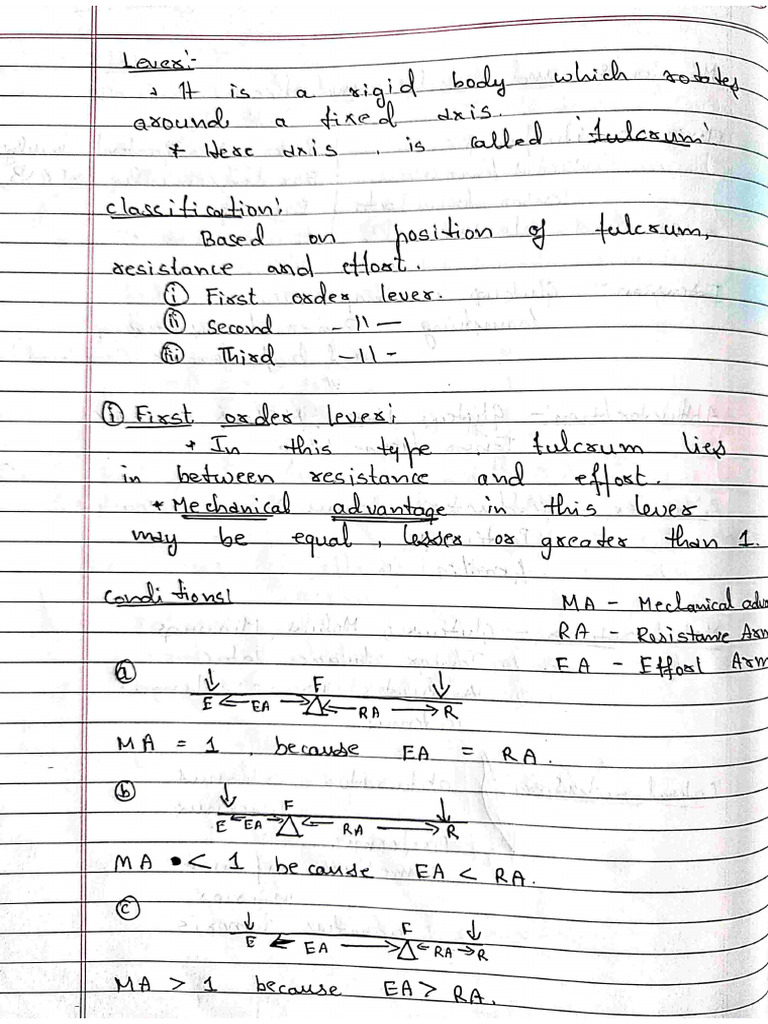 Lever:-
* It is a rigid body which rotates
around a fixed axis.
* Here axis, is called 'fulcrum'
classification:
Based on position of fulcrum,
resistance and effort.
(i) First order lever.
(ii) second -11-
(iii) Third -11-
(i) First order lever:
* In this type fulcrum lies
in between resistance and effort.
* Mechanical advantage in this lever
may be equal, lesser or greater than 1.
Conditions:
MA - Mechanical adva
RA - Resistance Arm
EA - Effort Arm
(a)
F
E ← EA → △ ← RA → R
MA = 1, because EA = RA.
(b)
F
E ← EA → △ ← RA → R
MA < 1 because EA < RA.
(c)
F
E ← EA → △ ← RA → R
MA > 1 because EA > RA.